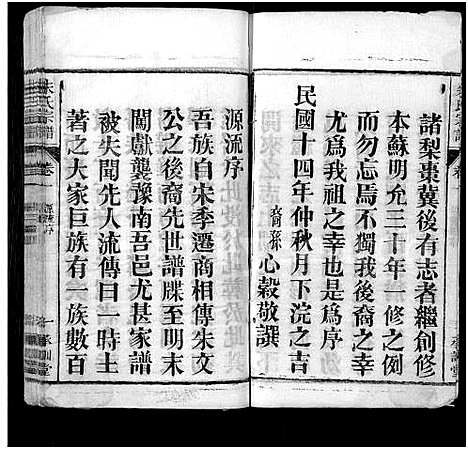 諸梨棗冀後有志者繼創修
本蘇明允三十年一修之例
而勿忘焉不獨我後裔之幸
尤爲我祖之幸也是爲序
民國十四年仲秋月下浣之吉
裔孫心穀敬譔
源流序
吾族自宋季遷商相傳朱文
公之後裔先世譜牒至明末
闖獻襲豫南吾邑尤甚家譜
被失聞先人流傳曰一時土
著之大家巨族有一族數百
朱氏宗譜
卷一
源流序